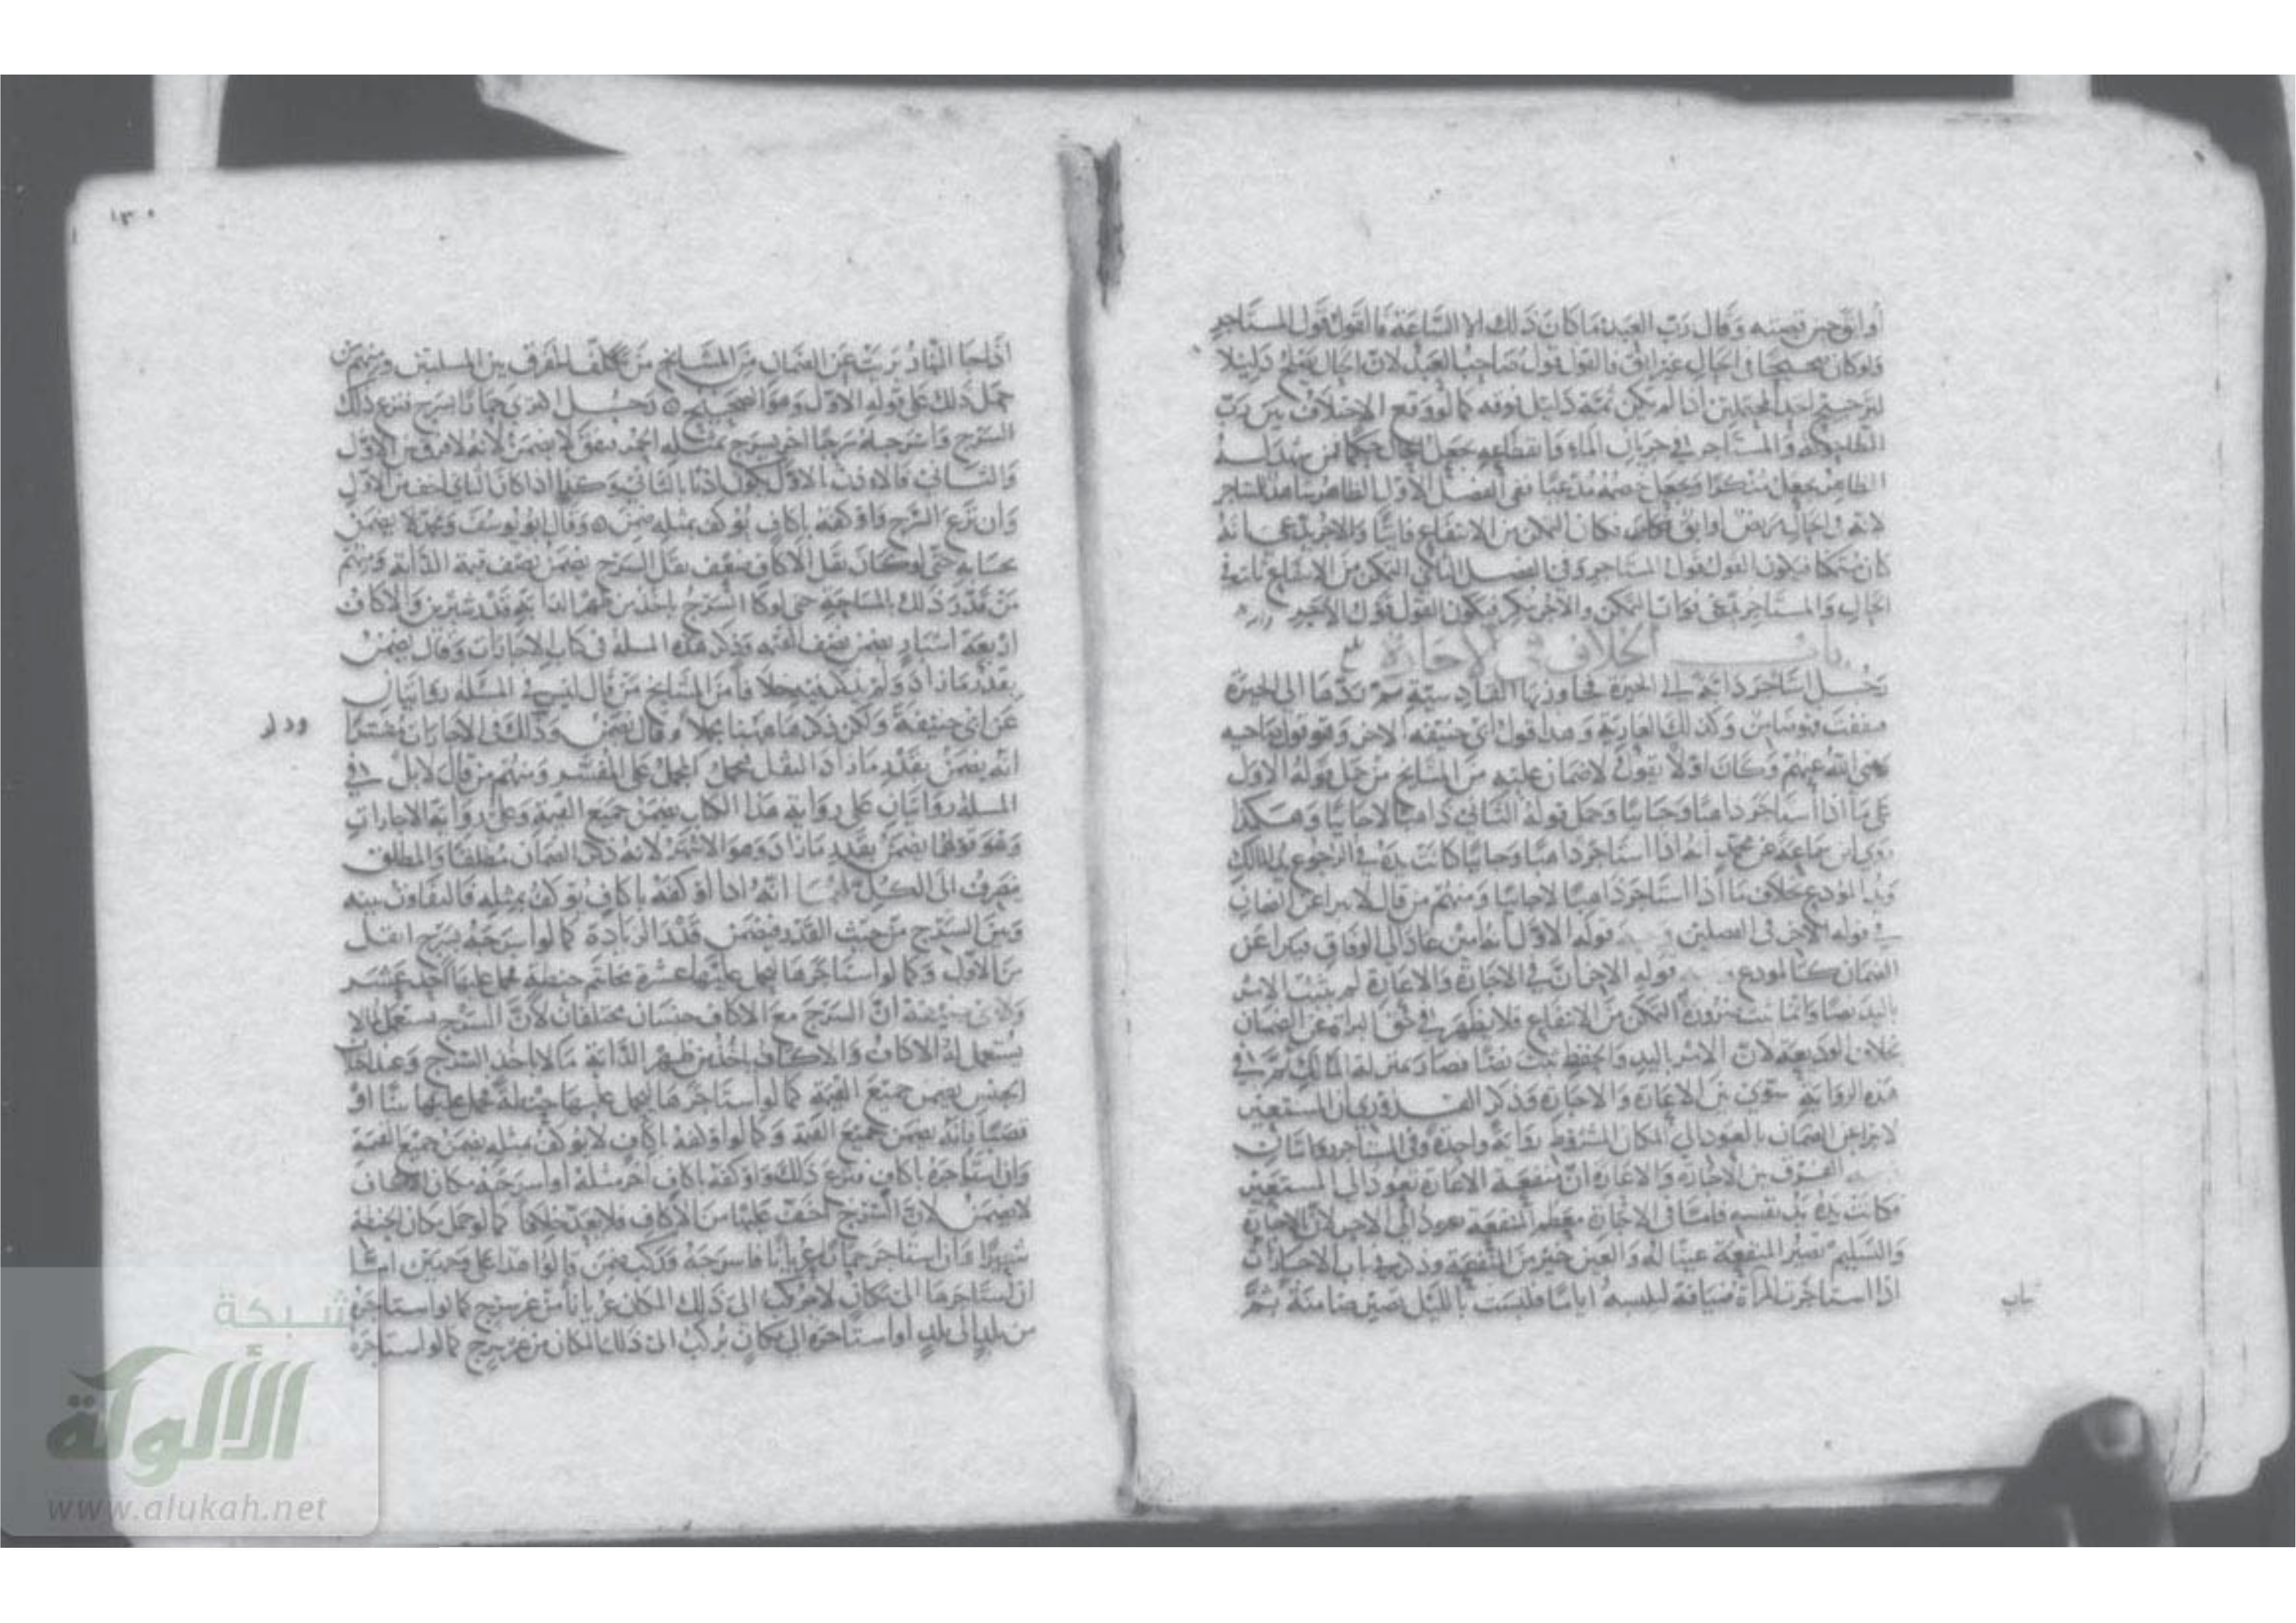 أو ابق حين قبضه وقال رب العبد ما كان ذلك الا الساعة فالقول قول المستاجر
ولو كان صحيحا في الحال غير ابق فالقول قول صاحب العبد لان الحال يصلح دليلا
لترجيح احد المحتملين اذا لم يكن ثمة دليل فوقه كما لو وقع الاختلاف بين رب
الطاحونة والمستاجر في جريان الماء وانقطاعه يجعل الحال حكما فمن شهد له
الظاهر يجعل منكرا ويجعل خصمه مدعيا ففي الفصل الاول الظاهر شاهد للمستاجر
لانه في الحال مريض او ابق فكان التمكن من الانتفاع فايتا والاخر يدعي انه
كان متمكنا فيكون القول قول المستاجر وفي الفصل الثاني التمكن من الانتفاع ثابت في
الحال والمستاجر يدعي فوات التمكن والاخر ينكر فيكون القول قول الاجير
باب الخلاف في الاجارة
رجل استاجر دابة الى الحيرة فجاوز بها القادسية ثم ردها الى الحيرة
فنفقت فهو ضامن وكذلك العارية وهذا قول ابي حنيفة الاخر وهو قول صاحبيه
رضي الله عنهم وكان اولا يقول لا ضمان عليه من المشايخ من حمل قوله الاول
على ما اذا استاجر ذاهبا وجائيا وحمل قوله الثاني ذاهبا لا جائيا وهكذا
روى ابن سماعة عن محمد انه اذا استاجر ذاهبا وجائيا كانت يده في الرجوع يد المالك
ويد المودع بخلاف ما اذا استاجر ذاهبا لا جائيا ومنهم من قال لا يبرا عن الضمان
في قوله الاخر في الفصلين قوله الاول انه امين عاد الى الوفاق فيبرا عن
الضمان كالمودع قوله الاخر ان في الاجارة والاعارة لم يثبت الامر
باليد نصا وانما ثبت ضرورة التمكن من الانتفاع فلا يظهر في حق البراة عن الضمان
بخلاف الوديعة لان الامر باليد والحفظ ثبت نصا فصار بمنزلة المالك ثم في
هذه الرواية سوى بين الاعارة والاجارة وذكر القدوري ان المستعير
لا يبرا عن الضمان بالعود الى المكان المشروط رواية واحدة وفي المستاجر روايتان
الفرق بين الاجارة والاعارة ان منفعة الاعارة تعود الى المستعير
فكانت يده يد نفسه فاما في الاجارة معظم المنفعة يعود الى الاجر لان الاجارة
والتسليم تصير المنفعة عينا له والعين خير من المنفعة وذكر في باب الاجارات
اذا استاجرت المراة ضيافة لتلبسه اياما فلبست بالليل تصير ضامنة ثم
ثياب
١٣٠
اذا جا النهار برئت عن الضمان من المشايخ من تكلف للفرق بين المسلتين ومنهم من
حمل ذلك على قوله الاول وهو الصحيح رجل اكترى حمارا بسرج فنزع ذلك
السرج واسرجه سرجا اخر يسرج بمثله الحمر فنفق لا يضمن لانه لا فرق بين الاول
والثاني فالاذن بالاول يكون اذنا بالثاني وكذا اذا كان الثاني اخف من الاول
وان نزع السرج فاوكفه باكاف يوكف بمثله ضمن وقال ابو يوسف ومحمد لا يضمن
بحسابه حتى لو كان ثقل الاكاف ضعف ثقل السرج يضمن نصف قيمة الدابة ومنهم
من قدر ذلك بالمساحة حتى لو كان السرج ياخذ من ظهر الدابة قدر شبرين والاكاف
اربعة اشبار يضمن نصف القيمة وذكر هذه المسلة في كتاب الاجارات وقال يضمن
بقدر ما زاد ولم يذكر فيه خلافا من المشايخ من قال ليس في المسلة روايتان
عن ابي حنيفة ولكن ذكرها ههنا مجملا وقال يضمن وذلك في الاجارات مفسرا
ودلر
انه يضمن بقدر ما زاد الثقل فيحمل المجمل على المفسر ومنهم من قال لا بل في
المسلة روايتان على رواية هذا الكتاب يضمن جميع القيمة وعلى رواية الاجارات
وهو قولهما يضمن بقدر ما زاد وهو الاشهر لانه ذكر الضمان مطلقا والمطلق
ينصرف الى الكل لهما انه اذا اوكفه باكاف يوكف بمثله فالتفاوت بينه
وبين السرج من حيث القدر فيضمن قدر الزيادة كما لو اسرجه بسرج اثقل
من الاول وكما لو استاجرها ليحمل عليها عشرة مخاتم حنطة فحمل عليها احد عشر
ولابي حنيفة ان السرج مع الاكاف جنسان مختلفان لان السرج يستعمل لما لا
يستعمل له الاكاف والاكاف ياخذ من ظهر الدابة ما لا ياخذ السرج وعند اختلاف
الجنس يضمن جميع القيمة كما لو استاجرها ليحمل عليها حنطة فحمل عليها تبنا او
قصبا فانه يضمن جميع القيمة وكما لو اوكفه باكاف لا يوكف بمثله يضمن جميع القيمة
وان استاجره باكاف فنزع ذلك واوكفه باكاف اخر مثله او اسرجه مكان الاكاف
لا يضمن لان السرج اخف عليها من الاكاف فلا يعد خلافا كما لو حمل مكان الحنطة
شعيرا وان استاجر حمارا عريانا فاسرجه وركب ضمن قالوا هذا على وجهين اما
ان استاجرها الى مكان لا يركب الى ذلك المكان عريانا من غير سرج كما لو استاجره
من بلد الى بلد او استاجره الى مكان يركب الى ذلك المكان من غير سرج كما لو استاجره
شبكة
الألوكة
www.alukah.net